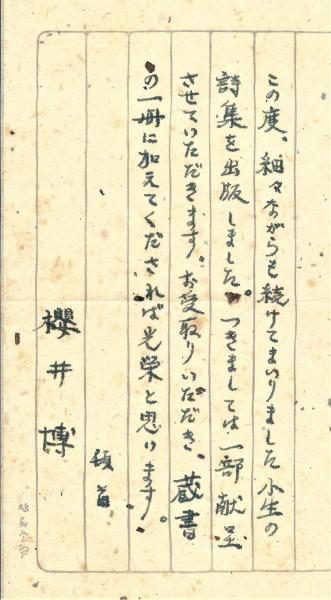 この度、細々ながらも続けてまいりました小生の
詩集を出版しました。つきましては一部献呈
させていただきます。お受取りいただき、蔵書
の一冊に加えてくだされば光栄と思います。
頓首
櫻井博